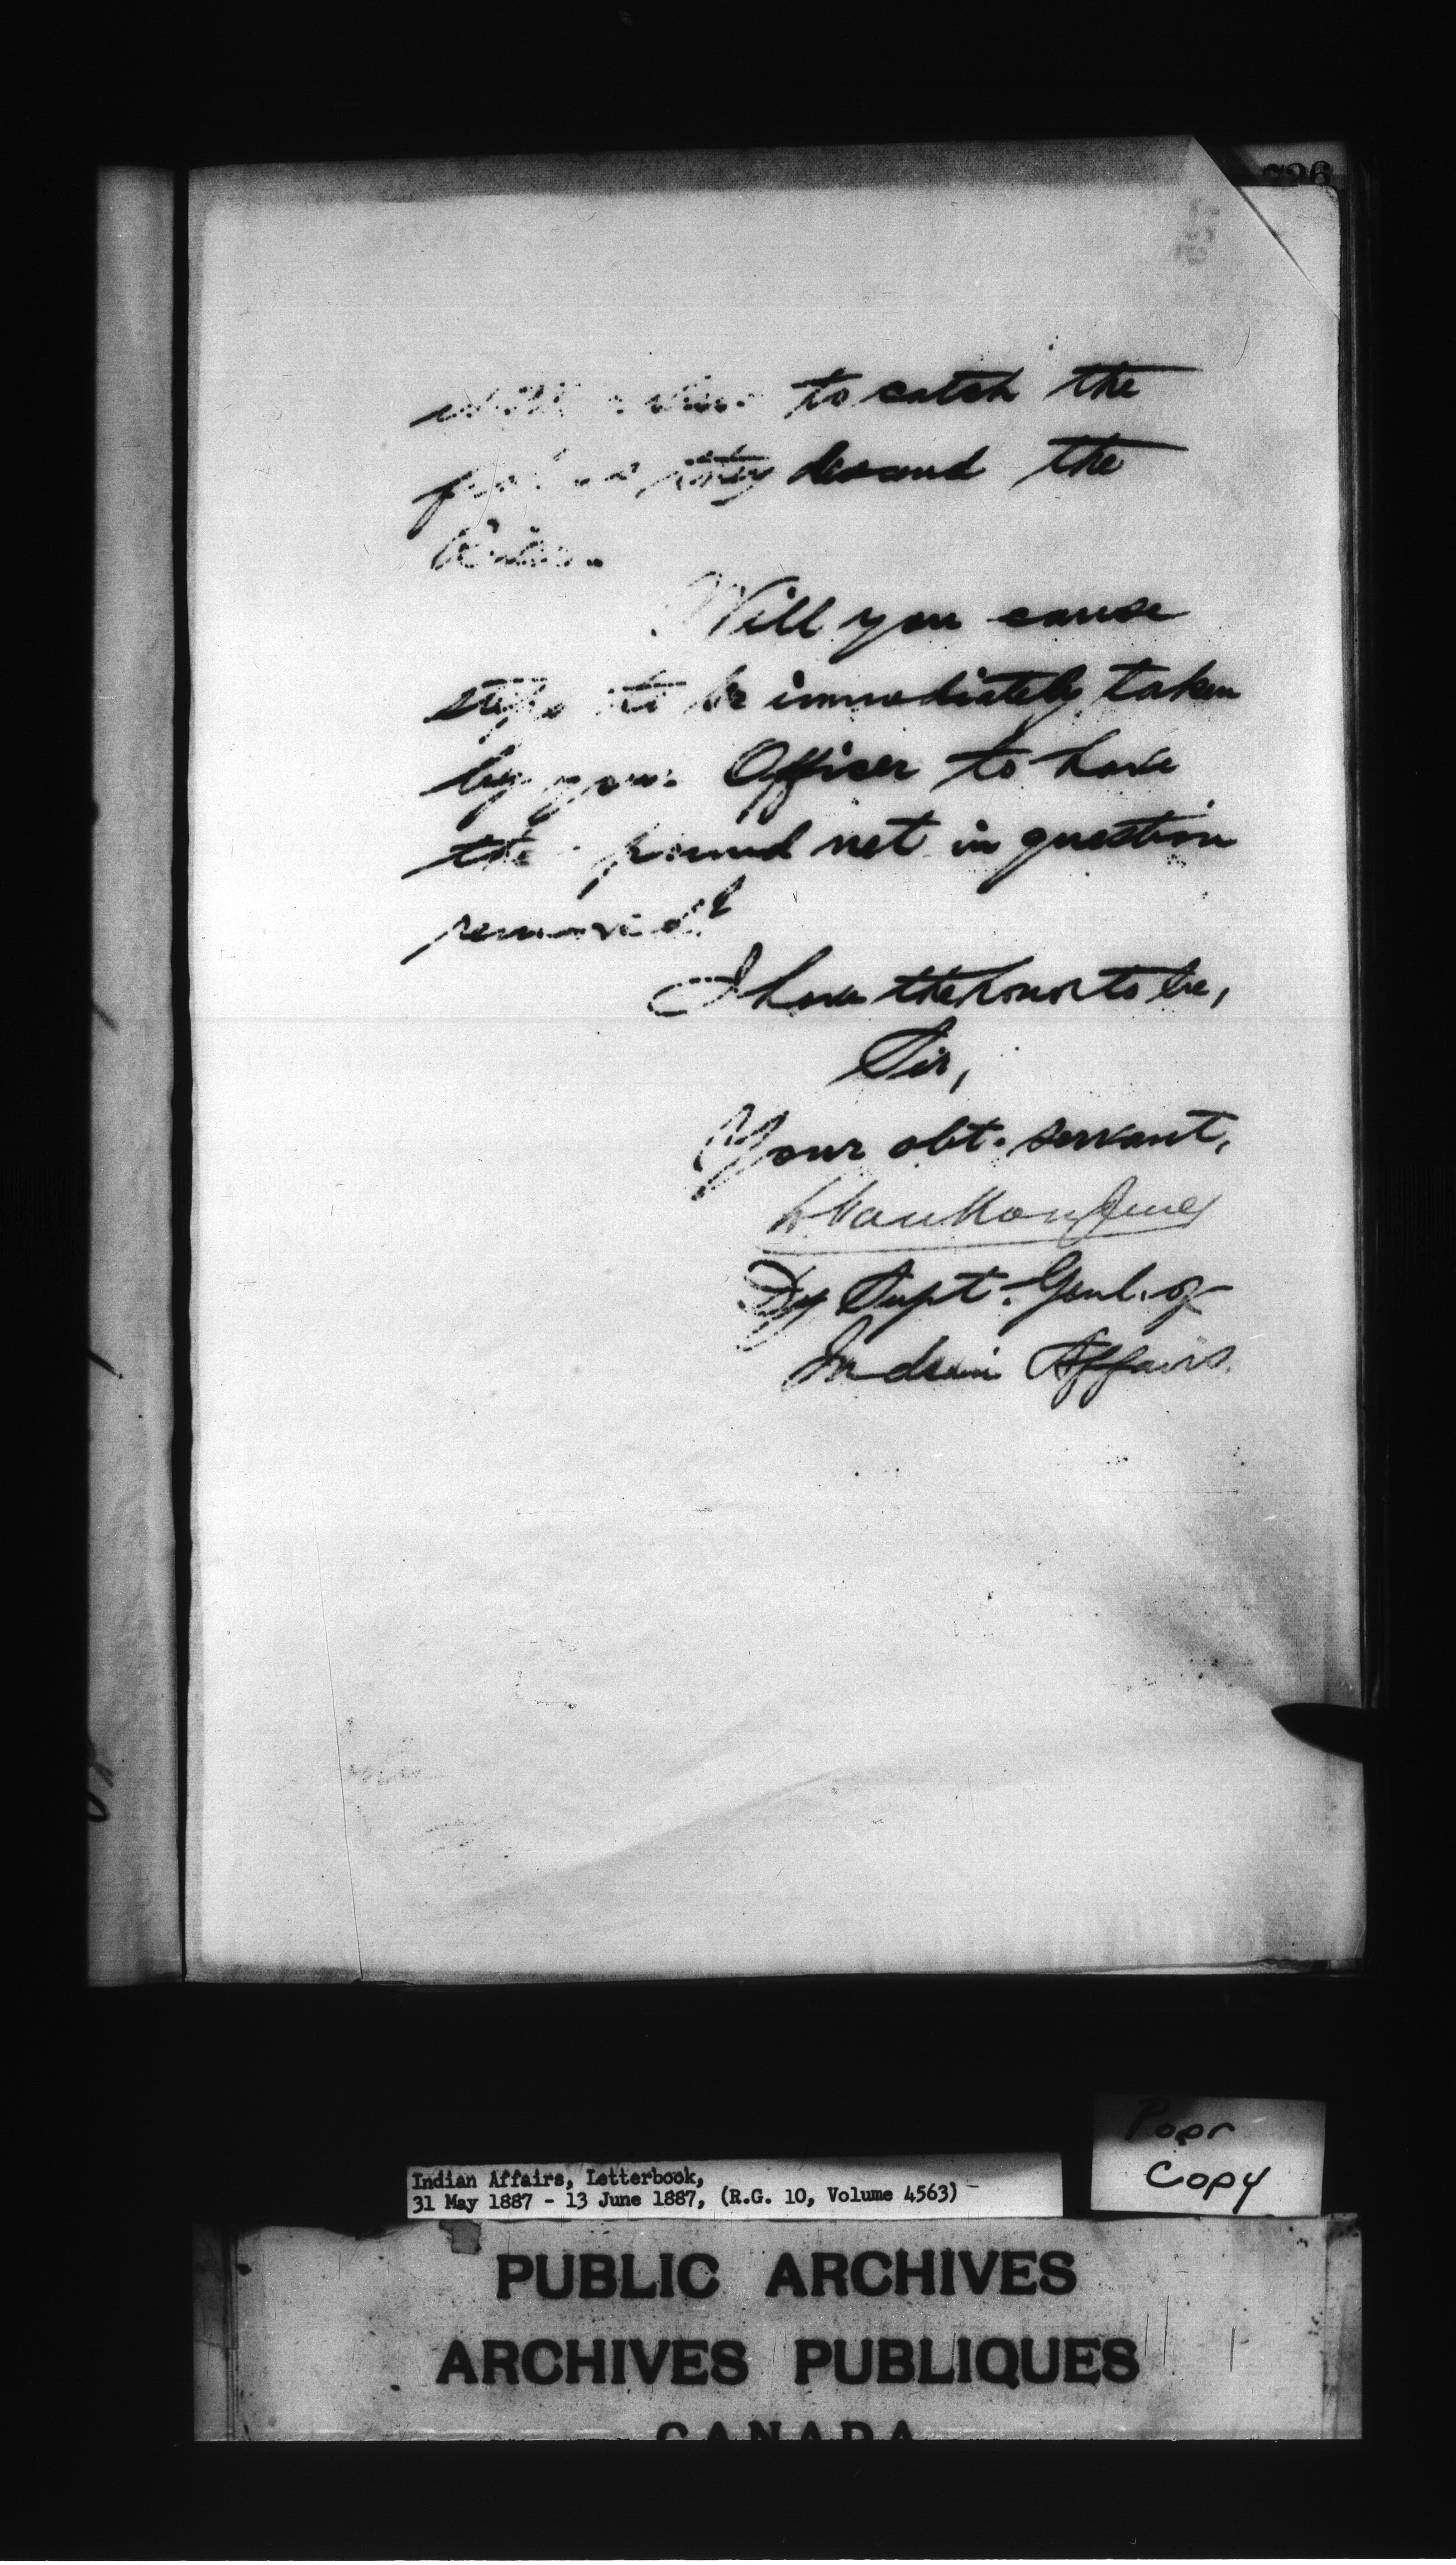 to catch the
they descend the
Will you cause
steps to be immediately taken
by your Officer to have
the pound net in question
removed?
I have the honor to be,
Sir,
Your obt. servant,
L. VanKoughnet
Dy Supt. Genl. of
Indian Affairs.
Poor
Copy
Indian Affairs, Letterbook,
31 May 1887 - 13 June 1887, (R.G. 10, Volume 4563)
PUBLIC ARCHIVES
ARCHIVES PUBLIQUES
CANADA